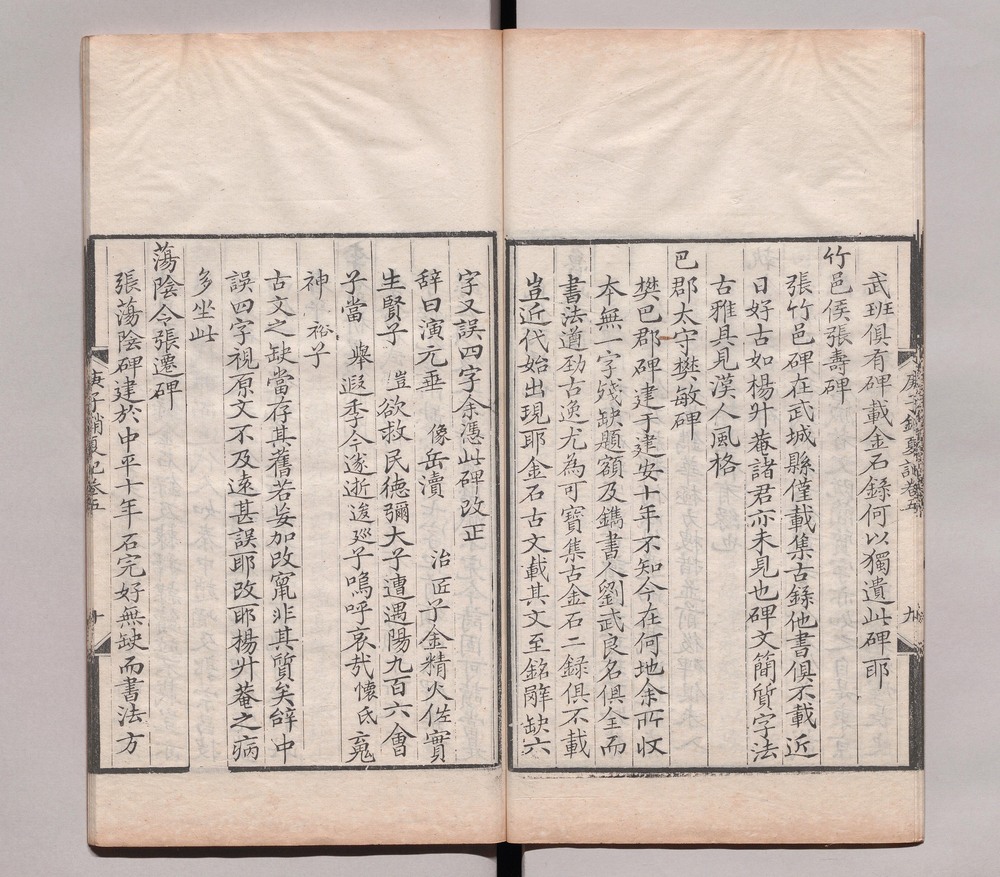 武班俱有碑載金石錄何以獨遺此碑耶
竹邑侯張壽碑
張竹邑碑在武城縣僅載集古錄他書俱不載近
日好古如楊升菴諸君亦未見也碑文簡質字法
古雅具見漢人風格
巴郡太守樊敏碑
樊巴郡碑建于建安十年不知今在何地余所收
本無一字殘缺題額及鐫書人劉武良名俱全而
書法遒勁古逸尤為可寶集古金石二錄俱不載
豈近代始出現耶金石古文載其文至銘辭缺六
字又誤四字余憑此碑改正
辭曰演元垂 像岳瀆 治匠子金精火佐實
生賢子 豈欲救民德彌大子遭遇陽九百六會
子當 舉遐季今遂逝逡廵子嗚呼哀哉懷氏寃
神 裕子
古文之缺當存其舊若妄加改竄非其質矣辭中
誤四字視原文不及遠甚誤耶改耶楊升菴之病
多坐此
蕩陰令張遷碑
張蕩陰碑建於中平十年石完好無缺而書法方
庚子銷夏記卷五
九
庚子銷夏記卷五
十